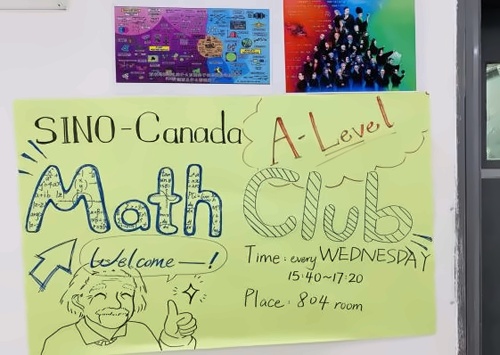 SINO-Canada A-Level
Math Club
Welcome—!
Time: every WEDNESDAY
15:40~17:20
Place: 804 room